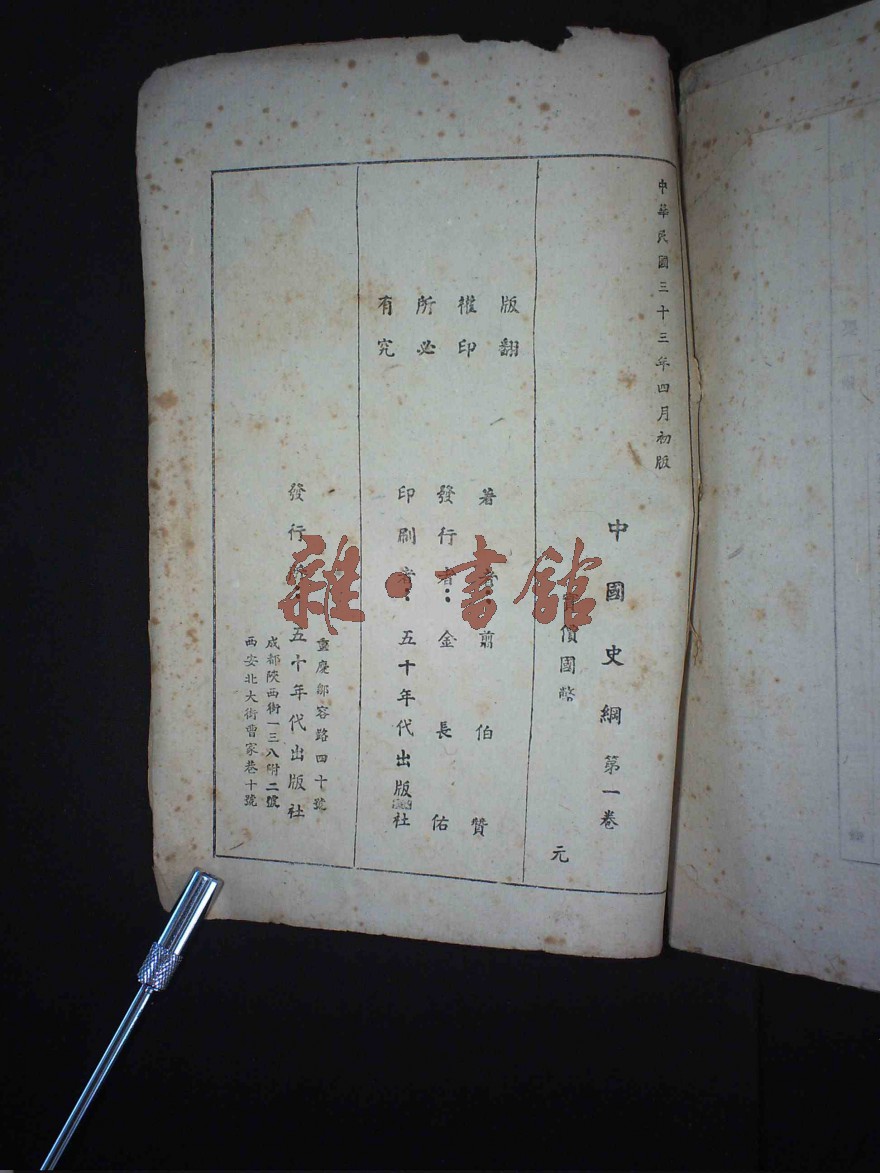 中華民國三十三年四月初版
中國史綱 第一卷
價國幣 元
版權所有
翻印必究
著者：翦伯贊
發行者：金長佑
印刷者：五十年代出版社
發行所：五十年代出版社
重慶鄒容路四十號
成都陝西街一三八附二號
西安北大街曹家巷十號
雜·書館